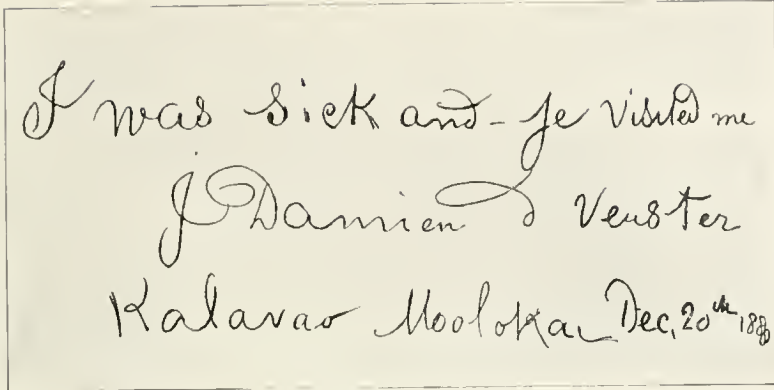 I was Sick and - ye visited me
J Damien d Veuster
Kalavao Moolokai Dec, 20th 1888